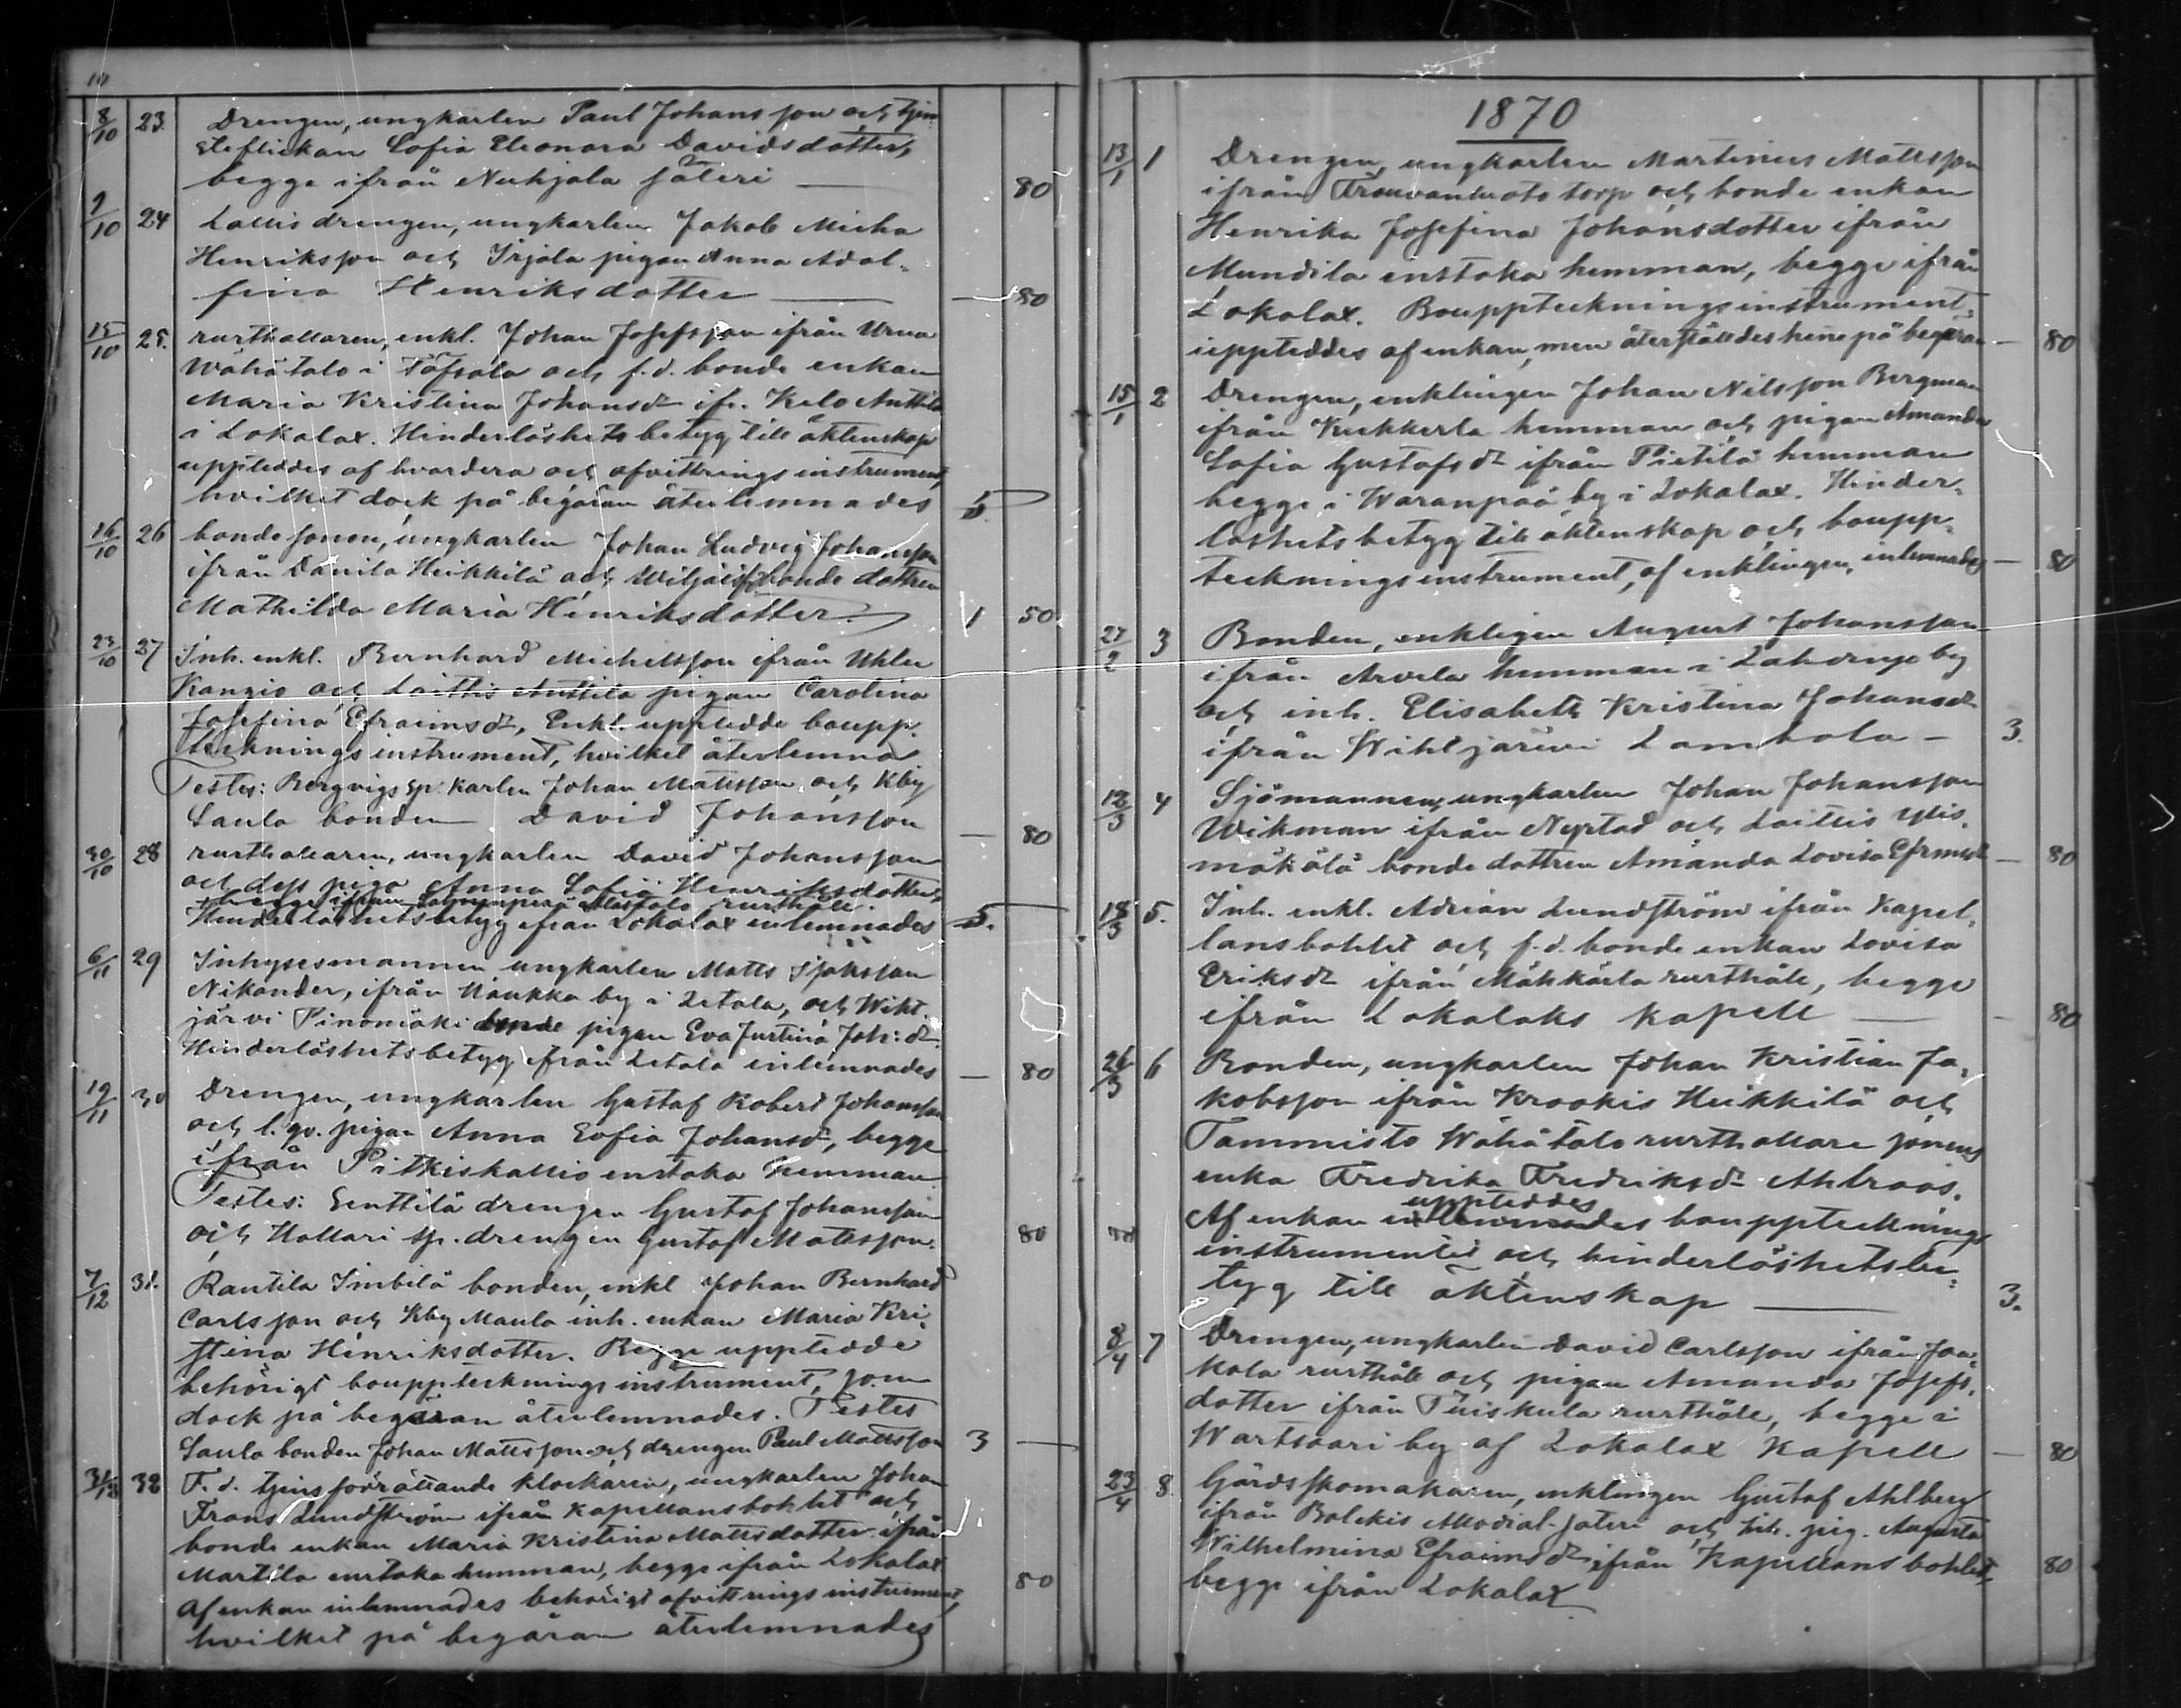 8/10 23. Drengen, ungkarlen Paul Johansson och tjen
steflickan Sofia Eleonora Davidsdotter,
begge ifrån Nuhjala säteri — 80
9/10 24 Laitis drengen, ungkarlen Jakob Micha
Henriksson och Irjala pigan Anna Adol-
fina Henriksdotter — — 80
15/10 25. rusthållaren, enkl. Johan Josefsson ifrån
Wähätalo i Töfsala och f.d. bonde enkan
Maria Kristina Johansdr ifr. Kelo Anttila
i Lokalax. Hinderlöshets betyg till äktenskap
uppteddes af hvardera och afvittrings instrument,
hvilket dock på begäran återlemnades 5
16/10 26 bondesonen, ungkarlen Johan Ludvig Johansson
ifrån Danila Heikkilä och bonde dottren
Mathilda Maria Henriksdotter. 1 50
23/10 27 Inh. enkl. Bernhard Michelsson ifrån Uhlu
Kangio och Laittis Anttila pigan Carolina
Josefina Efraimsdr, Enkl. uppteedde boupp-
tecknings instrument, hvilket återlemna
Testes: Bergvigs sp. karlen Johan Mattsson och Kby
Saula bonden David Johansson — 80
30/10 28 rusthållaren, ungkarlen David Johansson
och dess piga Anna Sofia Henriksdotter,
+ begge ifrån rusthåll.
Hinderlöshetsbetyg ifrån Lokalax inlemnades 5.
6/11 29 Inhysesmannen ungkarlen Matts Isaksson
Nikander, ifrån Haukka by i Letala, och Wiht
järvi Pinomäki pigan Eva Justina Joh:dr.
Hinderlöshetsbetyg ifrån Letala inlemnades — 80
19/11 30 Drengen, ungkarlen Gustaf Robert Johansson
och l. qv. pigan Anna Sofia Johansdr, begge
ifrån Pitkiskallio enstaka hemman
Testes: Senttilä drengen Gustaf Johansson
och Hallari sp. drengen Gustaf Mattsson. 80
7/12 31. Rautila Simbilä bonden, enkl Johan Bernhard
Carlsson och Kby Maula inh. enkan Maria Kri-
stina Henriksdotter. Begge uppteedde
behörigt bouppteckningsinstrument, som
dock på begäran återlemnades. Testes
Saula bonden Johan Mattsson och drengen Paul Mattsson 3 —
31/12 32 F. d. tjensförrättande klockaren, ungkarlen Johan
Frans Lundström ifrån Kapellansbohlet och
bonde enkan Maria Kristina Mattsdotter ifrån
Martila enstaka hemman, begge ifrån Lokalax 80
Af enkan inlemnades behörigt afvittrings instrument,
hvilket på begäran återlemnades
1870
13/1 1 Drengen, ungkarlen Martinus Mattsson
ifrån torp och bonde enkan
Henrika Josefina Johansdotter ifrån
Mundila enstaka hemman, begge ifrån
Lokalax. Bouppteckningsinstrument,
uppteddes af enkan, men återställdes henne på begäran — 80
15/1 2 Drengen, enklingen Johan Nilsson Bergman
ifrån Kukkerla hemman och pigan Amanda
Sofia Gustafsdr ifrån Pietilä hemman
begge i Waranpää by i Lokalax. Hinder-
löshetsbetyg till äktenskap och boupp-
teckningsinstrument, af enklingen, inlemnades — 80
27/2 3 Bonden, enkligen August Johansson
ifrån Arvela hemman i by
och inh. Elisabeth Kristina Johansdr
ifrån Wihtjärvi Lambola — 3.
12/3 4 Sjömannen, ungkarlen Johan Johansson
Wikman ifrån Nystad och Laittis Ylis.
mäkälä bonde dottren Amanda Lovisa Efrmsdr — 80
18/3 5. Inh. enkl. Adrian Lundström ifrån Kapel-
lansbohlet och f.d. bonde enkan Lovisa
Eriksdr ifrån Mähkärla rusthåll, begge
ifrån Lokalaks kapell — — 80
26/3 6 Bonden, ungkarlen Johan Kristian Ja-
kobsson ifrån Krookis Heikkilä och
Tammisto Wähätalo rusthållare sonens
enka Fredrika Fredriksdr Ahlroos.
uppteddes
Af enkan inlemnades bouppteckning
instrumentet och hinderlöshetsbe-
tyg till äktenskap — 3.
8/4 7 Drengen, ungkarlen David Carlsson ifrån Jaa-
kola rusthåll och pigan Amanda Josefs.
dotter ifrån Puiskula rusthåll, begge i
Wartsaari by af Lokalax Kapell — 80
23/4 8. Gårdsskomakaren, enklingen Gustaf Ahlberg
ifrån Bolckis Allodial-säteri och inh. pig. Augusta
Wilhelmina Efraimsdr ifrån Kapellansbohlet, 80
begge ifrån Lokalax